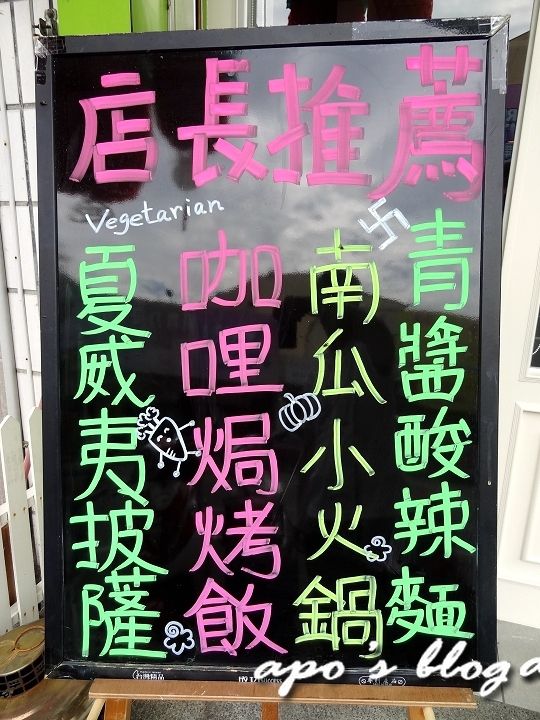 店長推薦
Vegetarian
卍
青醬酸辣麵
南瓜小火鍋
咖哩焗烤飯
夏威夷披薩
台灣精品
SUCCESS
apo's blog